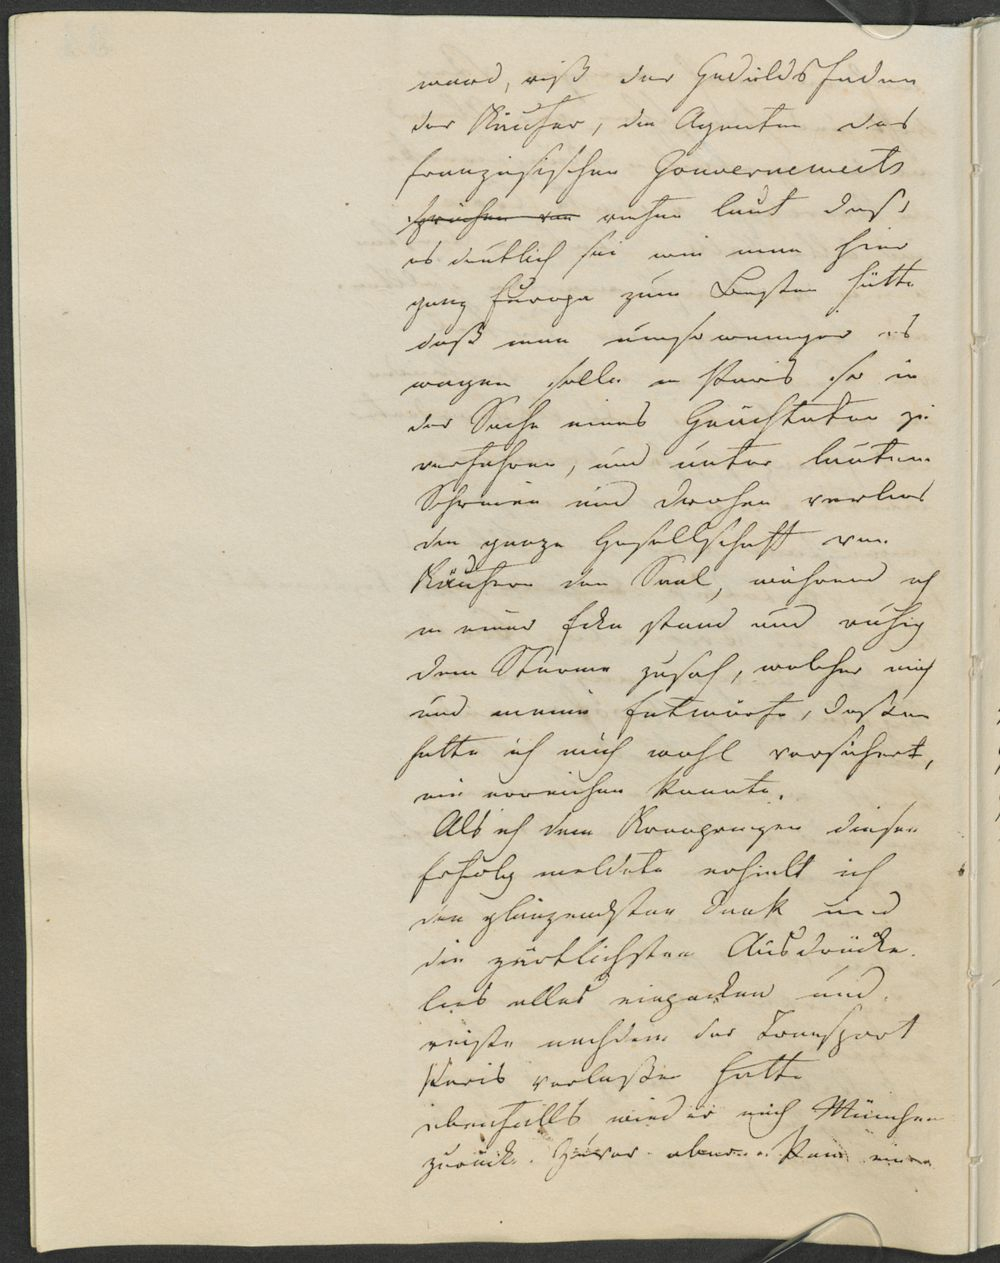 ward, riß der Geduldsfaden
der Käufer, die Agenten des
französischen Gouvernements
sprachen von riefen laut dass
es deutlich sei wie man hier
ganz Europa zum Besten hätte
daß man umsoweniger es
wagen solle in Paris so in
der Sache eines Geächteten zu
verfahren, und unter lautem
Schreien und Drohen verlies
die ganze Gesellschaft von
Käufern den Saal, während ich
in einer Ecke stand und ruhig
dem Sturme zusah, welcher mich
und meine Entwürfe, dessen
hatte ich mich wohl versichert,
nie erreichen konnte.
Als ich dem Kronprinzen diesen
Erfolg meldete erhielt ich
den glänzendsten Dank und
die zärtlichsten Ausdrücke.
lies alles einpacken und
reiste nachdem der Transport
Paris verlaßen hatte
ebenfalls wieder nach München
zurück. Zuvor aber kam